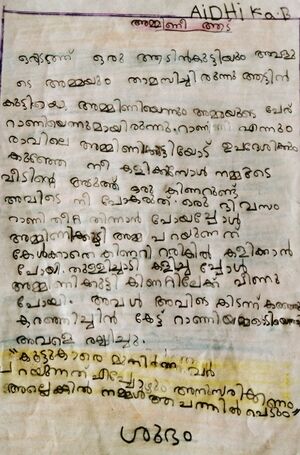 AiDHiKa.B
അമ്മിണി ആട്
ഒരിടത്ത് ഒരു ആടിൻകുട്ടിയും അവളു
ടെ അമ്മയും താമസിച്ചിരുന്നു ആട്ടിൻ
കുട്ടിയെ അമ്മിണിയെന്നും അമ്മയുടെ പേര്
റാണിയെന്നുമായിരുന്നു. റാണി എന്നും
രാവിലെ അമ്മിണികുട്ടിയോട് ഉപദേശിക്കും
കുഞ്ഞേ നീ കളിക്കുമ്പോൾ നമ്മുടെ
വീടിന്റെ അടുത്ത് ഒരു കിണറുണ്ട്
അവിടെ നീ പോകരുത്. ഒരു ദിവസം
റാണി തീറ്റ തിന്നാൻ പോയപ്പോൾ
അമ്മിണികുട്ടി അമ്മ പറയുന്നത്
കേൾക്കാതെ കിണറ്റിൻ കരികിൽ കളിക്കാൻ
പോയി. തുള്ളിച്ചാടി കളിച്ചപ്പോൾ
അമ്മിണികുട്ടി കിണറ്റിലേക്ക് വീണു
പോയി. അവൾ അവിടെ കിടന്ന്
കരഞ്ഞിച്ചിൻ കേട്ട്
അവളെ രക്ഷിച്ചു.
"കൂട്ടുകാരെ മുതിർന്നവർ
പറയുന്നത് എപ്പോഴും അനുസരിക്കണം
അല്ലെങ്കിൽ നമ്മൾ ആപത്തിൽ പെടും"
ശുഭം